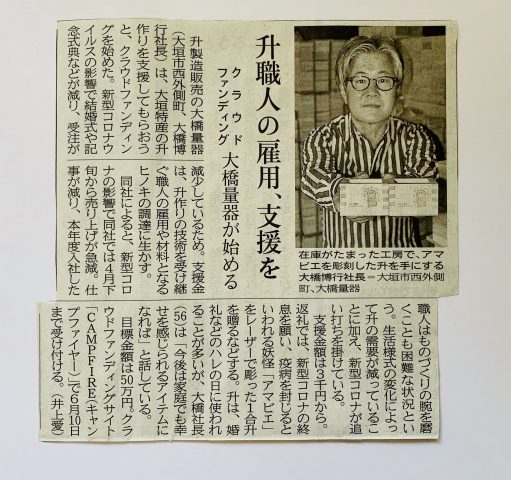 升職人の雇用、支援を
クラウド
ファンディング
大橋量器が始める
升製造販売の大橋量器
(大垣市西外側町、大橋博
行社長)は、大垣特産の升
作りを支援してもらおう
と、クラウドファンディン
グを始めた。新型コロナウ
イルスの影響で結婚式や記
念式典などが減り、受注が
減少しているため。支援金
は、升作りの技術を受け継
ぐ職人の雇用や材料となる
ヒノキの調達に生かす。
同社によると、新型コロ
ナの影響で同社では4月下
旬から売り上げが急減。仕
事が減り、本年度入社した
職人はものづくりの腕を磨
くことも困難な状況とい
う。生活様式の変化によっ
て升の需要が減っているこ
とに加え、新型コロナが追
い打ちを掛けている。
支援金額は3千円から。
返礼では、新型コロナの終
息を願い、疫病を封じると
いわれる妖怪「アマビエ」
をレーザーで彫った1合升
を贈るなどする。升は、婚
礼などのハレの日に使われ
ることが多いが、大橋社長
(56)は「今後は家庭でも幸
せを感じられるアイテムに
なれば」と話している。
目標金額は50万円。クラ
ウドファンディングサイト
「CAMPFIRE(キャン
プファイヤー)」で6月10日
まで受け付ける。(井上愛)
在庫がたまった工房で、アマ
ビエを彫刻した升を手にする
大橋博行社長=大垣市西外側
町、大橋量器